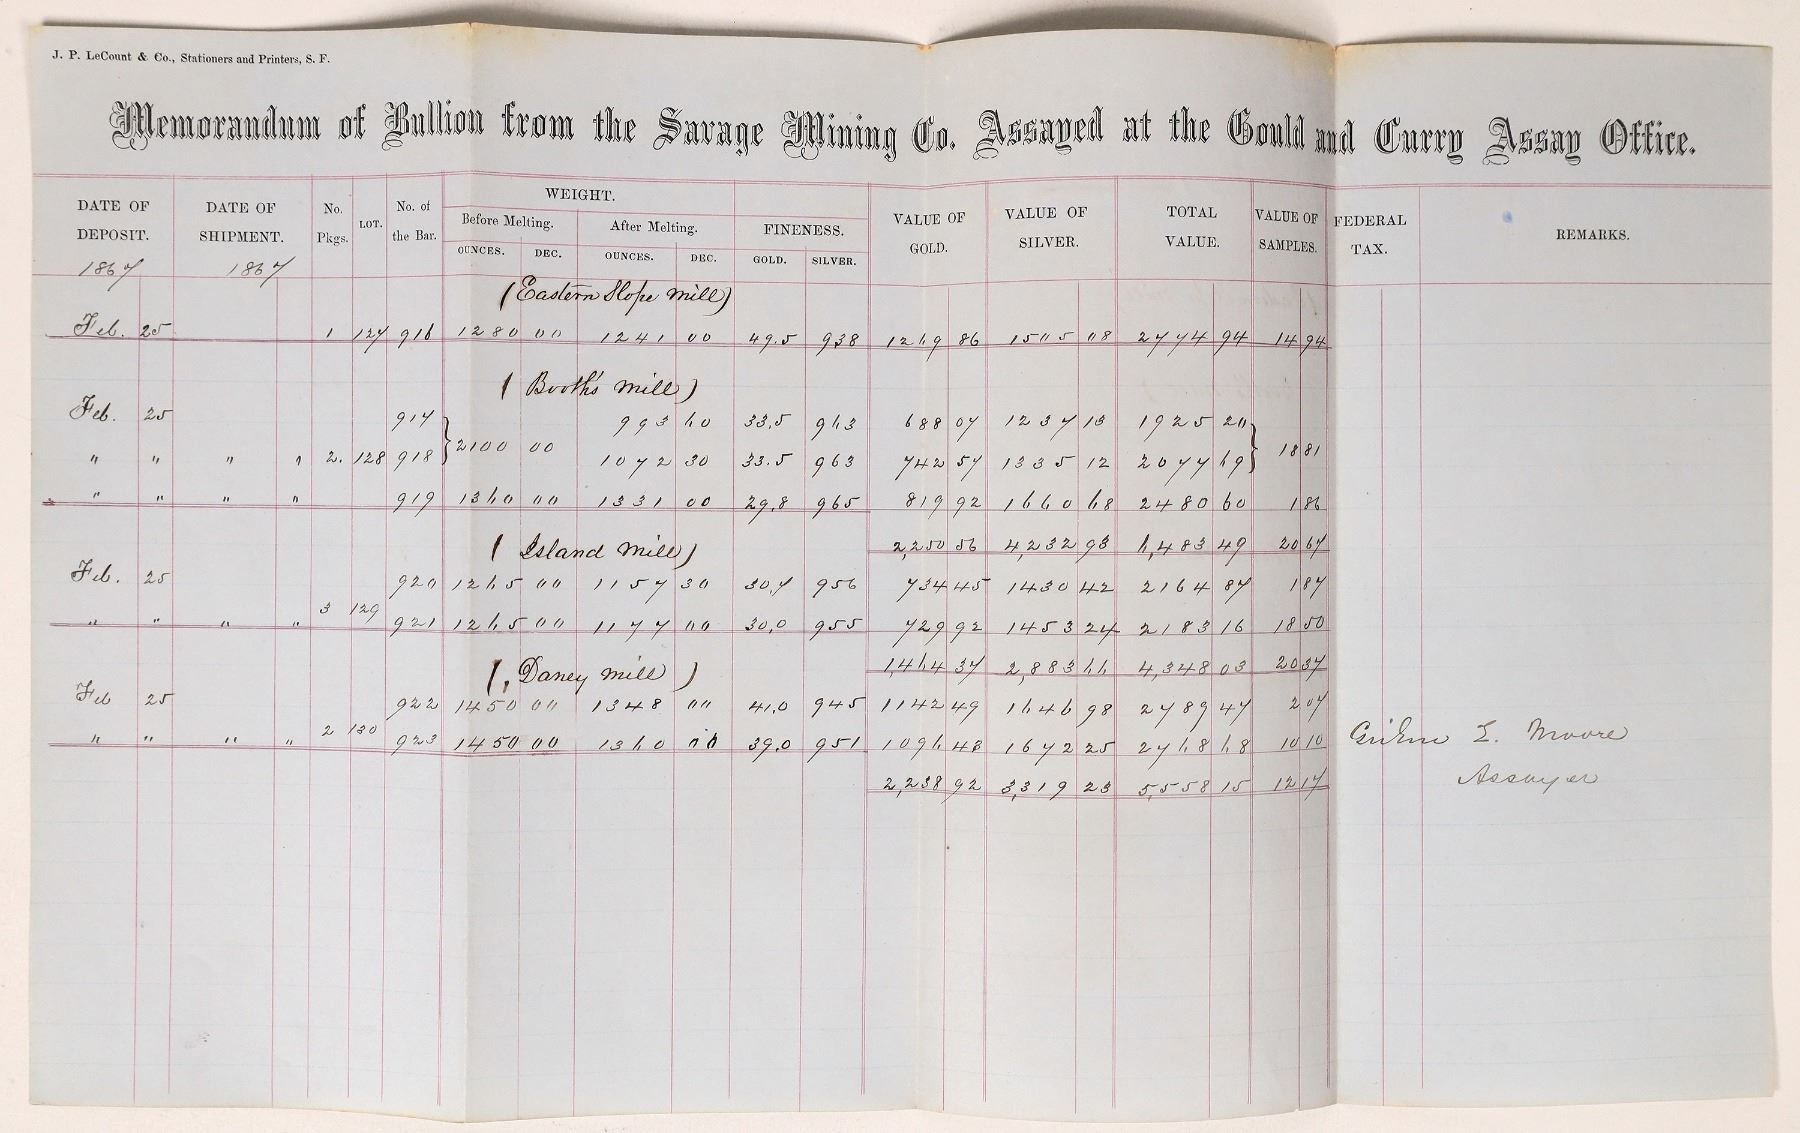 J. P. LeCount & Co., Stationers and Printers, S. F.
Memorandum of Bullion from the Savage Mining Co. Assayed at the Gould and Curry Assay Office.
DATE OF DEPOSIT. 1867
DATE OF SHIPMENT. 1867
No. Pkgs.
LOT.
No. of the Bar.
WEIGHT.
Before Melting.
OUNCES. DEC.
After Melting.
OUNCES. DEC.
FINENESS.
GOLD. SILVER.
VALUE OF GOLD.
VALUE OF SILVER.
TOTAL VALUE.
VALUE OF SAMPLES.
FEDERAL TAX.
REMARKS.
(Eastern Slope Mill)
Feb. 25 1 127 916 1280 00 1241 00 49.5 938 1269 86 1505 08 2774 94 14 94
(Booth's Mill)
Feb. 25 917 993 60 33.5 963 688 07 1237 13 1925 20
" " " " 2. 128 918 2100 00 1072 30 33.5 963 742 57 1335 12 2077 69 18 81
" " " " 919 1360 00 1331 00 29.8 965 819 92 1660 68 2480 60 1 86
2,250 56 4,232 93 6,483 49 20 67
(Island Mill)
Feb. 25 920 1265 00 1157 30 30.7 956 734 45 1430 42 2164 87 1 87
" " " " 3 129 921 1265 00 1177 00 30.0 955 729 92 1453 24 2183 16 18 50
1,464 37 2,883 66 4,348 03 20 37
(Daney Mill)
Feb 25 922 1450 00 1348 00 41.0 945 1142 49 1646 98 2789 47 2 07
" " " " 2 130 923 1450 00 1360 00 39.0 951 1096 43 1672 25 2768 68 10 10
2,238 92 3,319 23 5,558 15 12 17
E. Moore
Assayer